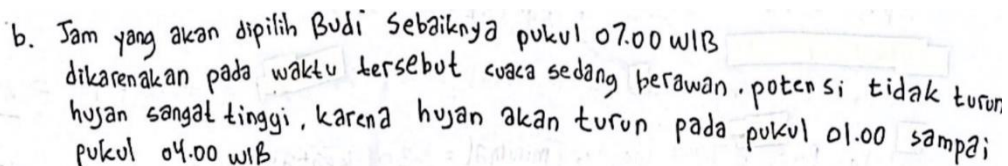 b. Jam yang akan dipilih Budi sebaiknya pukul 07.00 WIB
dikarenakan pada waktu tersebut cuaca sedang berawan. potensi tidak turun
hujan sangat tinggi, karena hujan akan turun pada pukul 01.00 sampai
pukul 04.00 WIB